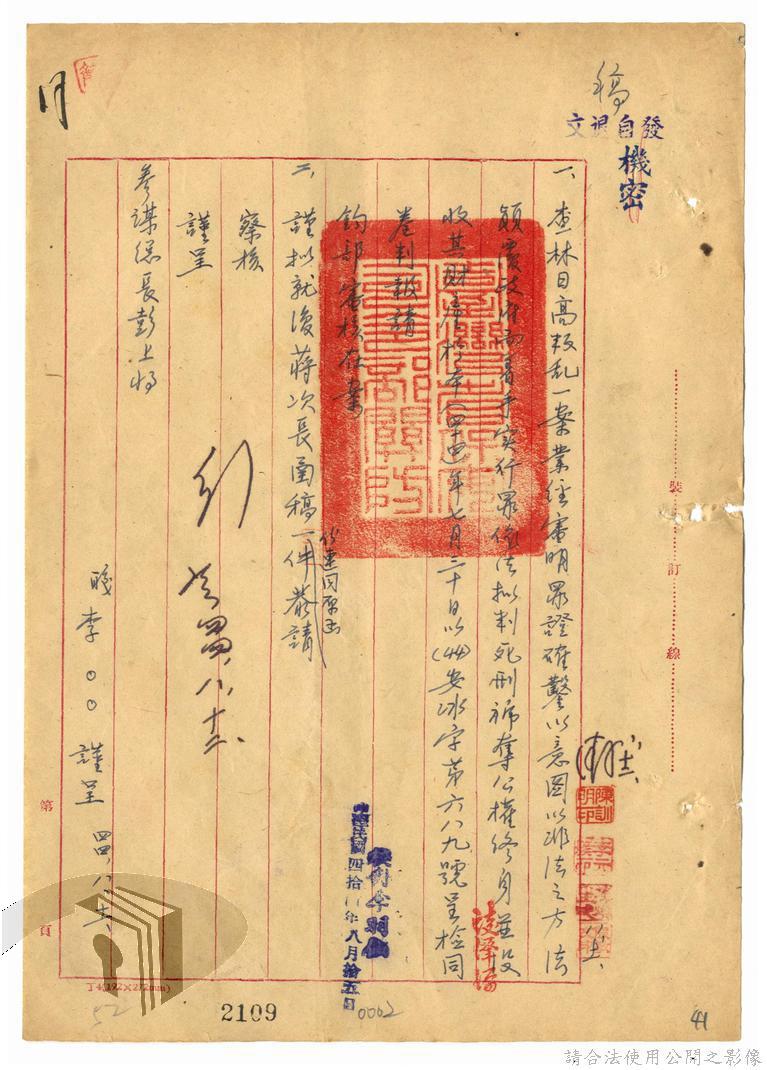 稿
發自退文
機密
一、查林日高叛乱一案業經審明罪證確鑿以意圖以非法之方法
顛覆政府而着手实行罪依法拟判死刑褫奪公權終身並没
收其財產於本(四四)年七月二十日以(44)安咏字第六八九號呈检同
卷判報請
鈞部審核在案
二、謹拟就復蔣次長函稿一件恭請
察核
謹呈
參謀總長彭上將
職李○○謹呈 四四、八、
裝 訂 線
陳訓明印
中華民國四拾 年八月拾五日
第 頁
2109
0062
52
41
請合法使用公開之影像